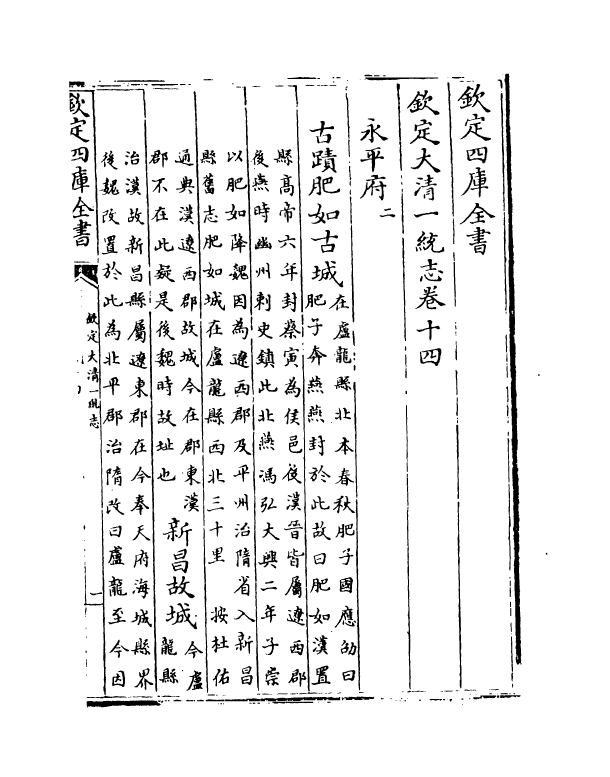 欽定四庫全書
欽定大清一統志卷十四
永平府二
古蹟肥如古城
在盧龍縣北本春秋肥子國應劭曰
肥子奔燕燕封於此故曰肥如漢置
縣髙帝六年封蔡寅為侯邑後漢晉皆屬遼西郡
後燕時幽州刺史鎮此北燕馮弘大興二年子崇
以肥如降魏因為遼西郡及平州治隋省入新昌
縣舊志肥如城在盧龍縣西北三十里 按杜佑
通典漢遼西郡故城今在郡東漢
郡不在此疑是後魏時故址也
新昌故城
今盧
龍縣
治漢故新昌縣屬遼東郡在今奉天府海城縣界
後魏改置於此為北平郡治隋改曰盧龍至今因
欽定四庫全書
欽定大清一統志
一